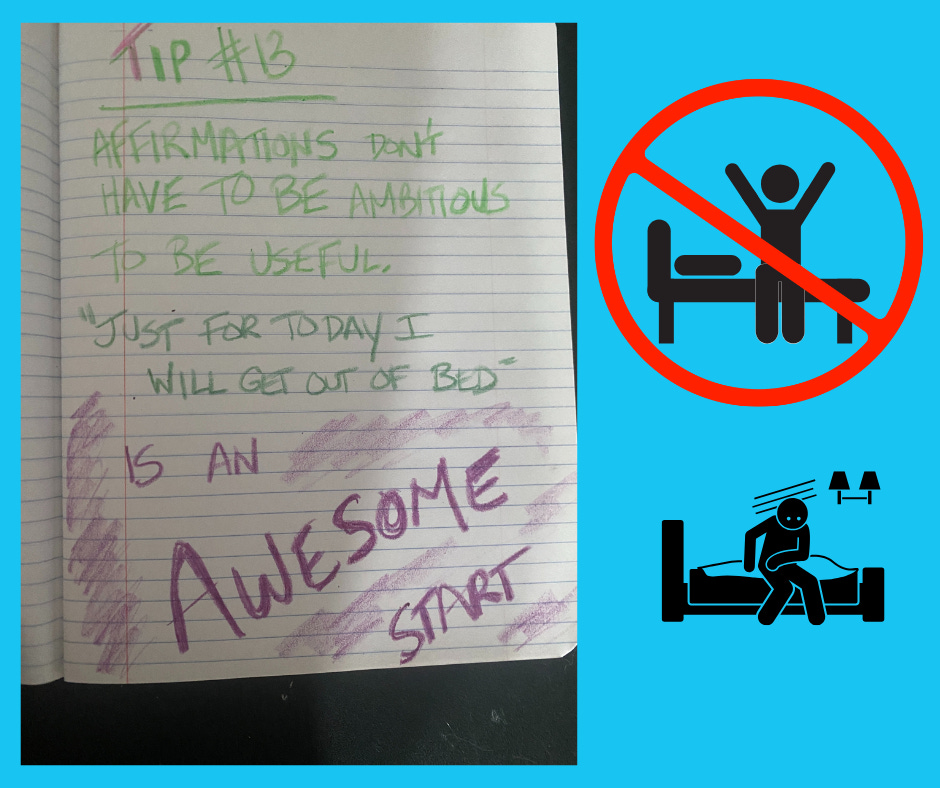 TIP #13
AFFIRMATIONS DON'T
HAVE TO BE AMBITIOUS
TO BE USEFUL.
"JUST FOR TODAY I
WILL GET OUT OF BED"
IS AN
AWESOME
START